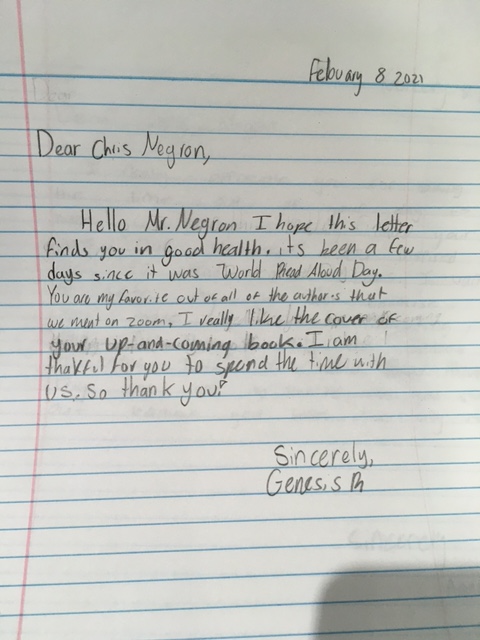 Febuary 8 2021
Dear Chris Negron,
Hello Mr. Negron I hope this letter
finds you in good health. its been a few
days since it was World Read Aloud Day.
You are my favorite out of all of the authors that
we ment on zoom. I really like the cover of
your up-and-coming book. I am
thakful for you to spend the time with
us. So thank you!
Sincerely,
Genesis R